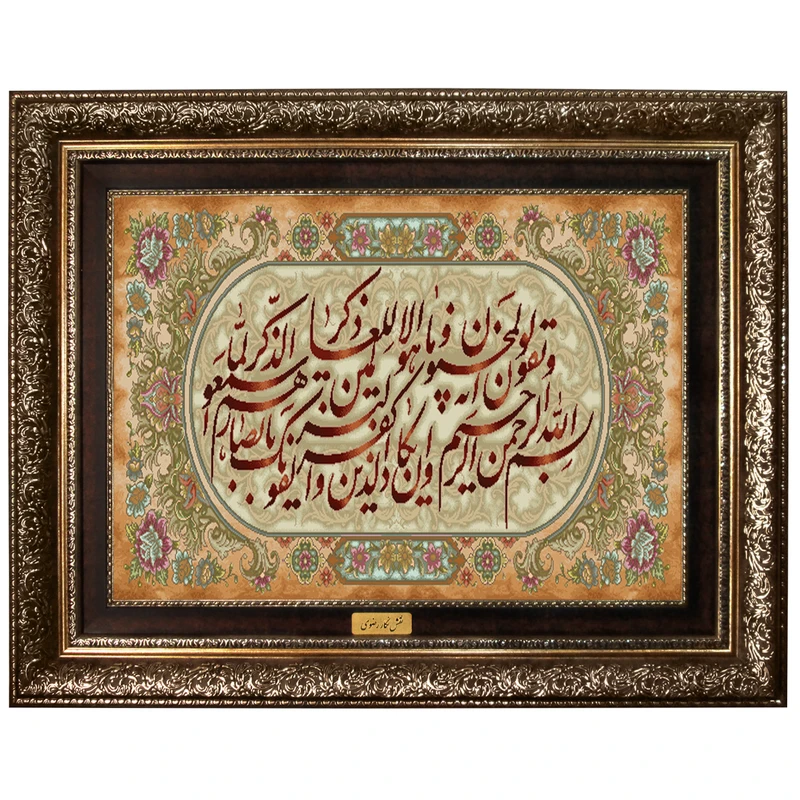 بسم الله الرحمن الرحیم
وان یکاد الذین کفروا لیزلقونک بابصارهم
لما سمعوا الذکر
ویقولون انه لمجنون وما هو الا ذکر للعالمین
نقش نگار رضوی